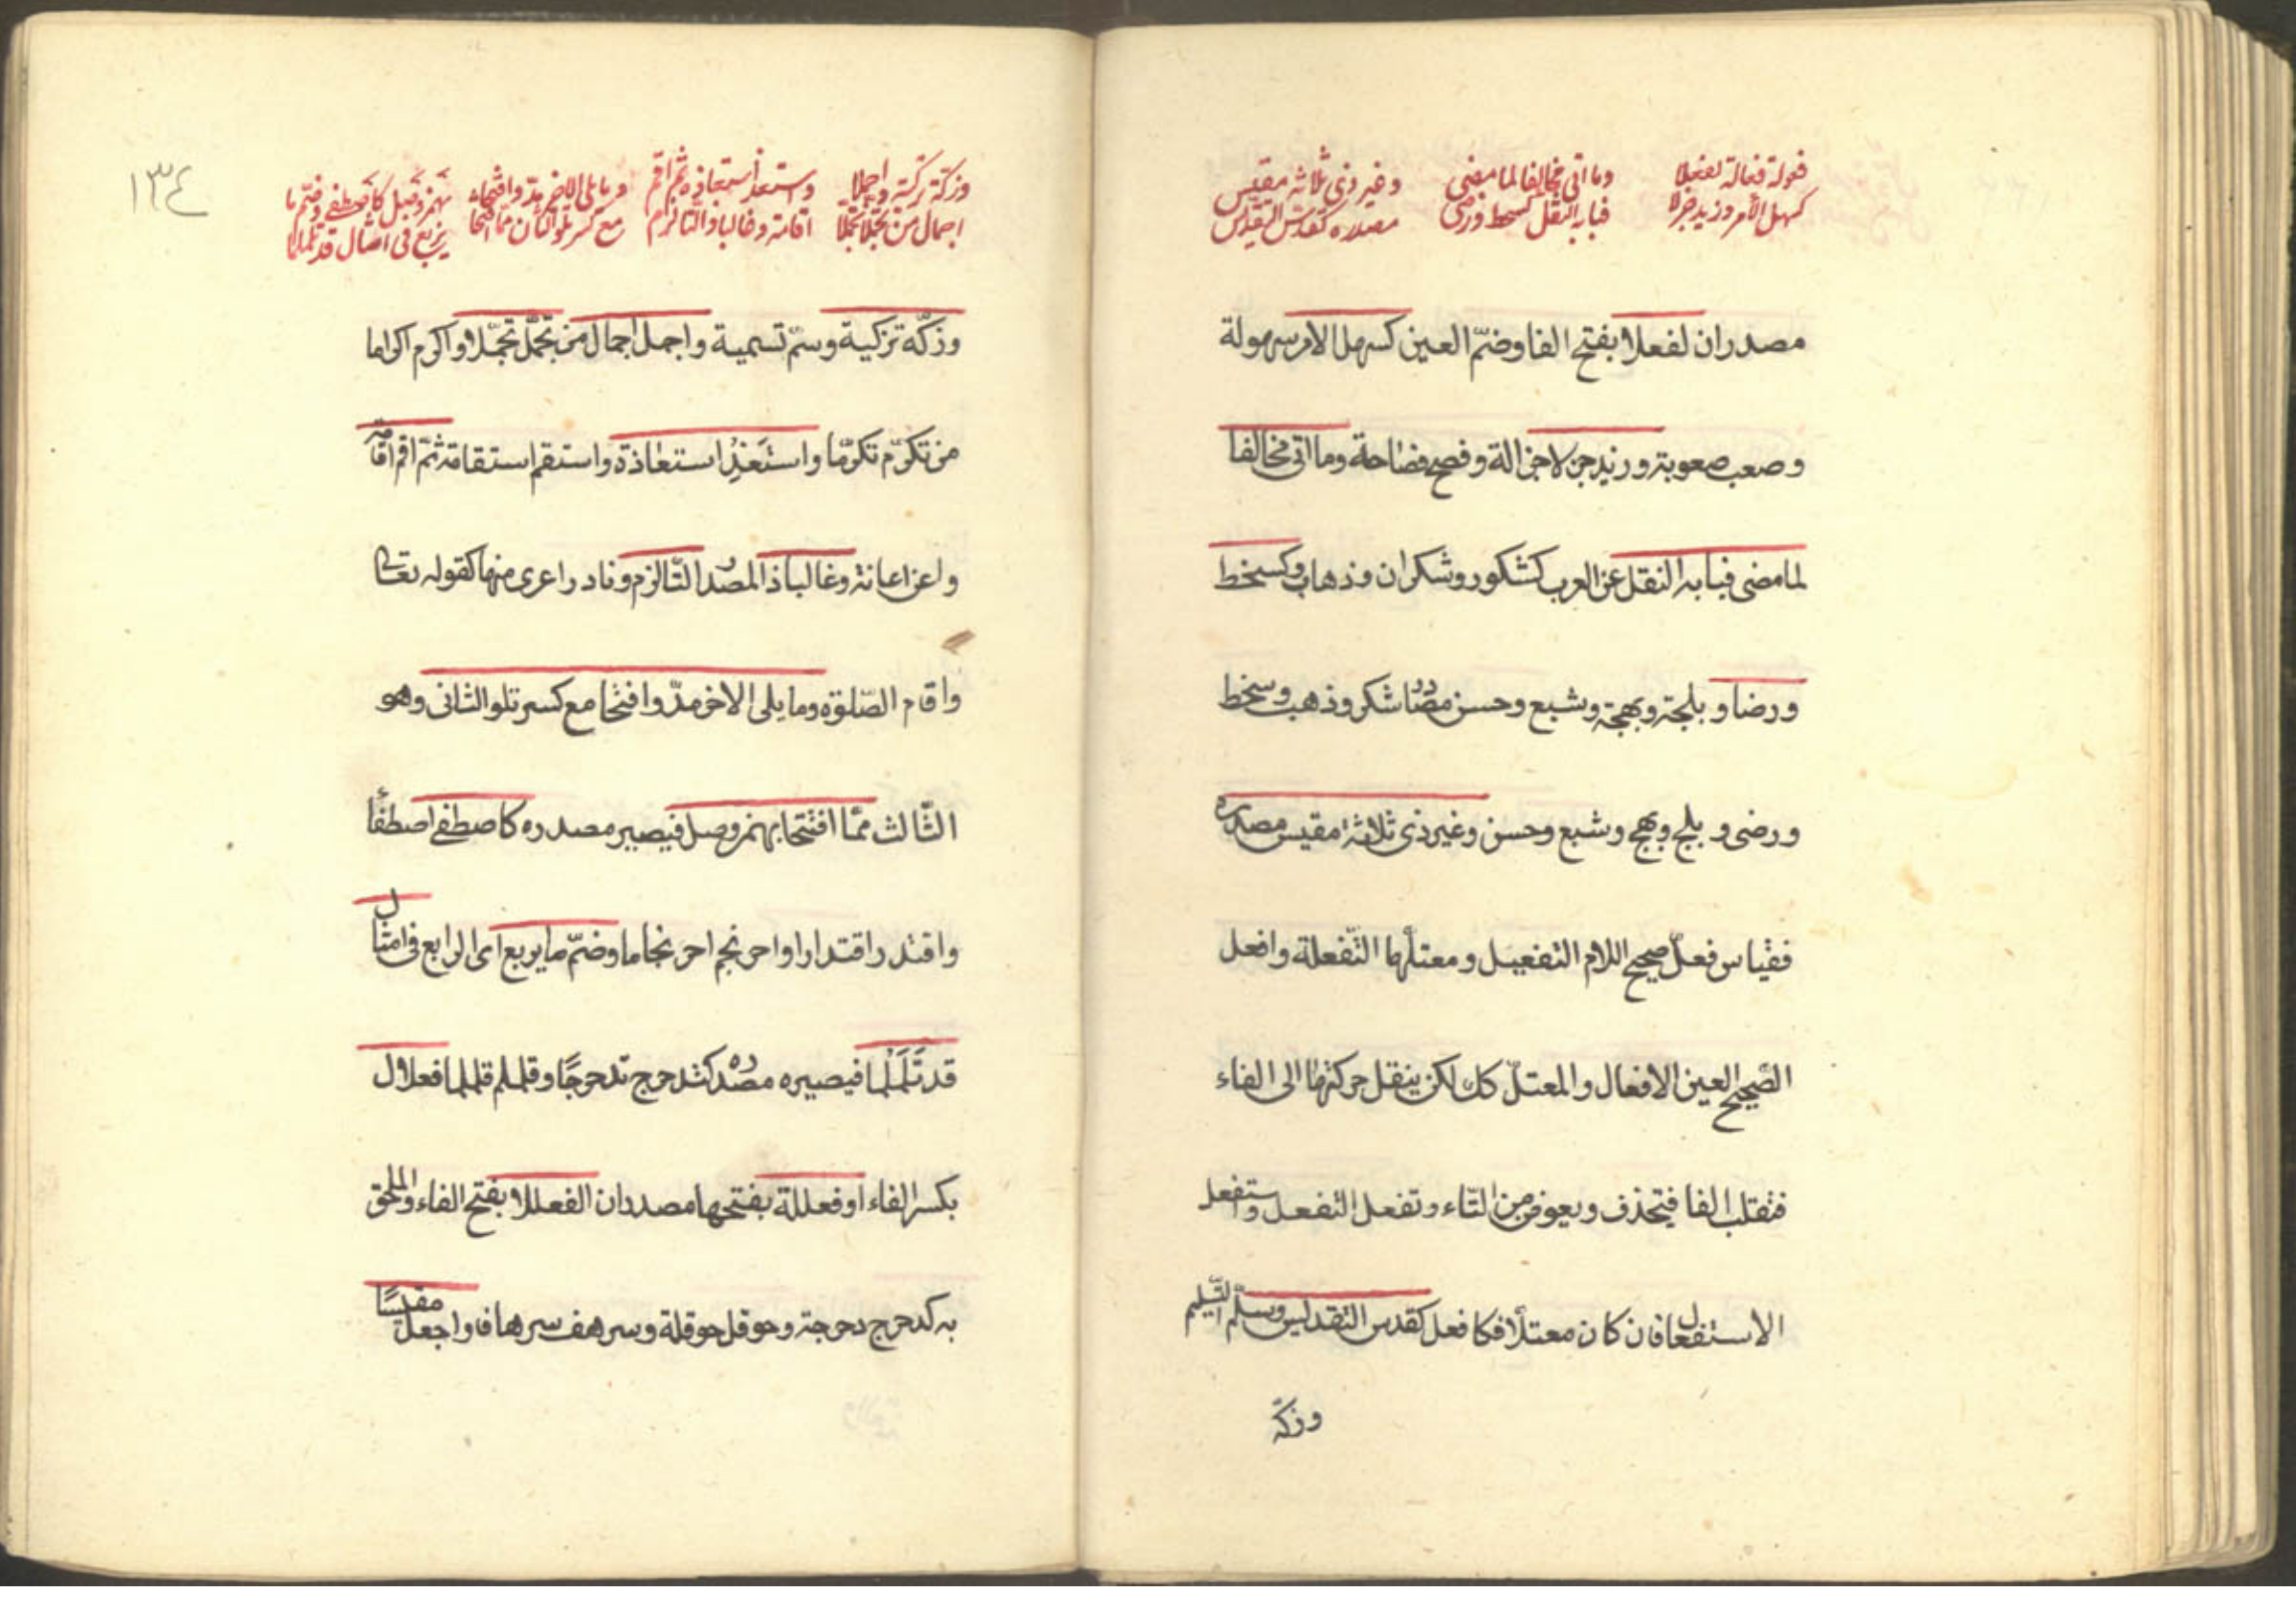 فعولة فعالة لفعلا وما اتى مخالفا لما مضى وغير ذى ثلاثة مقيس
كسهل الأمر وزيد جزلا فبابه النقل كسخط ورضى مصدره كقدّس التقديس
مصدران لفعلا بفتح الفا وضمّ العين كسهل الامر سهولة
وصعب صعوبة وزيد جزلا جزالة وفصح فصاحة وما اتى مخالفا
لما مضى فبابه النقل عن العرب كشكور وشكران وذهاب وكسخط
ورضا وبلجة وبهجة وشبع وحسن مصادر شكر وذهب وسخط
ورضى وبلج وبهج وشبع وحسن وغير ذى ثلاثة مقيس مصدره
فقياس فعلّ صحيح اللام التفعيل ومعتلّها التّفعلة وافعل
الصّحيح العين الافعال والمعتلّ كك لكن ينقل حركتها الى الفاء
فتقلب الفا فتحذف ويعوض من التّاء وتفعل التفعل واستفعل
الاستفعال فان كان معتلّا فكافعل كقدس التقديس وسلّم التّسليم
وزكّه
١٣٤
وزكّه تزكية واجملا واستعذ استعاذة ثمّ اقم وما يلى الاخر مدّ وافتحا بهمز وصل كاصطفى وضمّ ما
اجمال من تجمّلا تجمّلا اقامة وغالبا ذا التا لزم مع كسر تلو الثان مما افتتحا يربع فى امثال قد تلملما
وزكّه تزكية وسمّ تسمية واجمل اجمال من تجمّل تجمّلا واكرم اكراما
من تكرّم تكرّما واستعذ استعاذة واستقم استقامة ثمّ اقم اقامة
واعن اعانة وغالبا ذا المصدر التّا لزم ونادرا عرى منها كقوله تعالى
واقام الصّلوة وما يلى الاخر مدّ وافتحا مع كسر تلو الثانى وهو
الثّالث ممّا افتتحا بهمز وصل فيصير مصدره كاصطفى اصطفاء
واقتدر اقتدارا واحرنجم احرنجاما وضمّ ما يربع اى الرابع فى امثال
قد تلملما فيصير مصدره كتدحرج تدحرجًا وتلملم تلملما فعلال
بكسر الفاء او فعللة بفتحها مصدران الفعللا بفتح الفاء والملحق
به كدحرج دحرجة وحوقل حوقلة وسرهف سرهافا واجعل مقيسًا